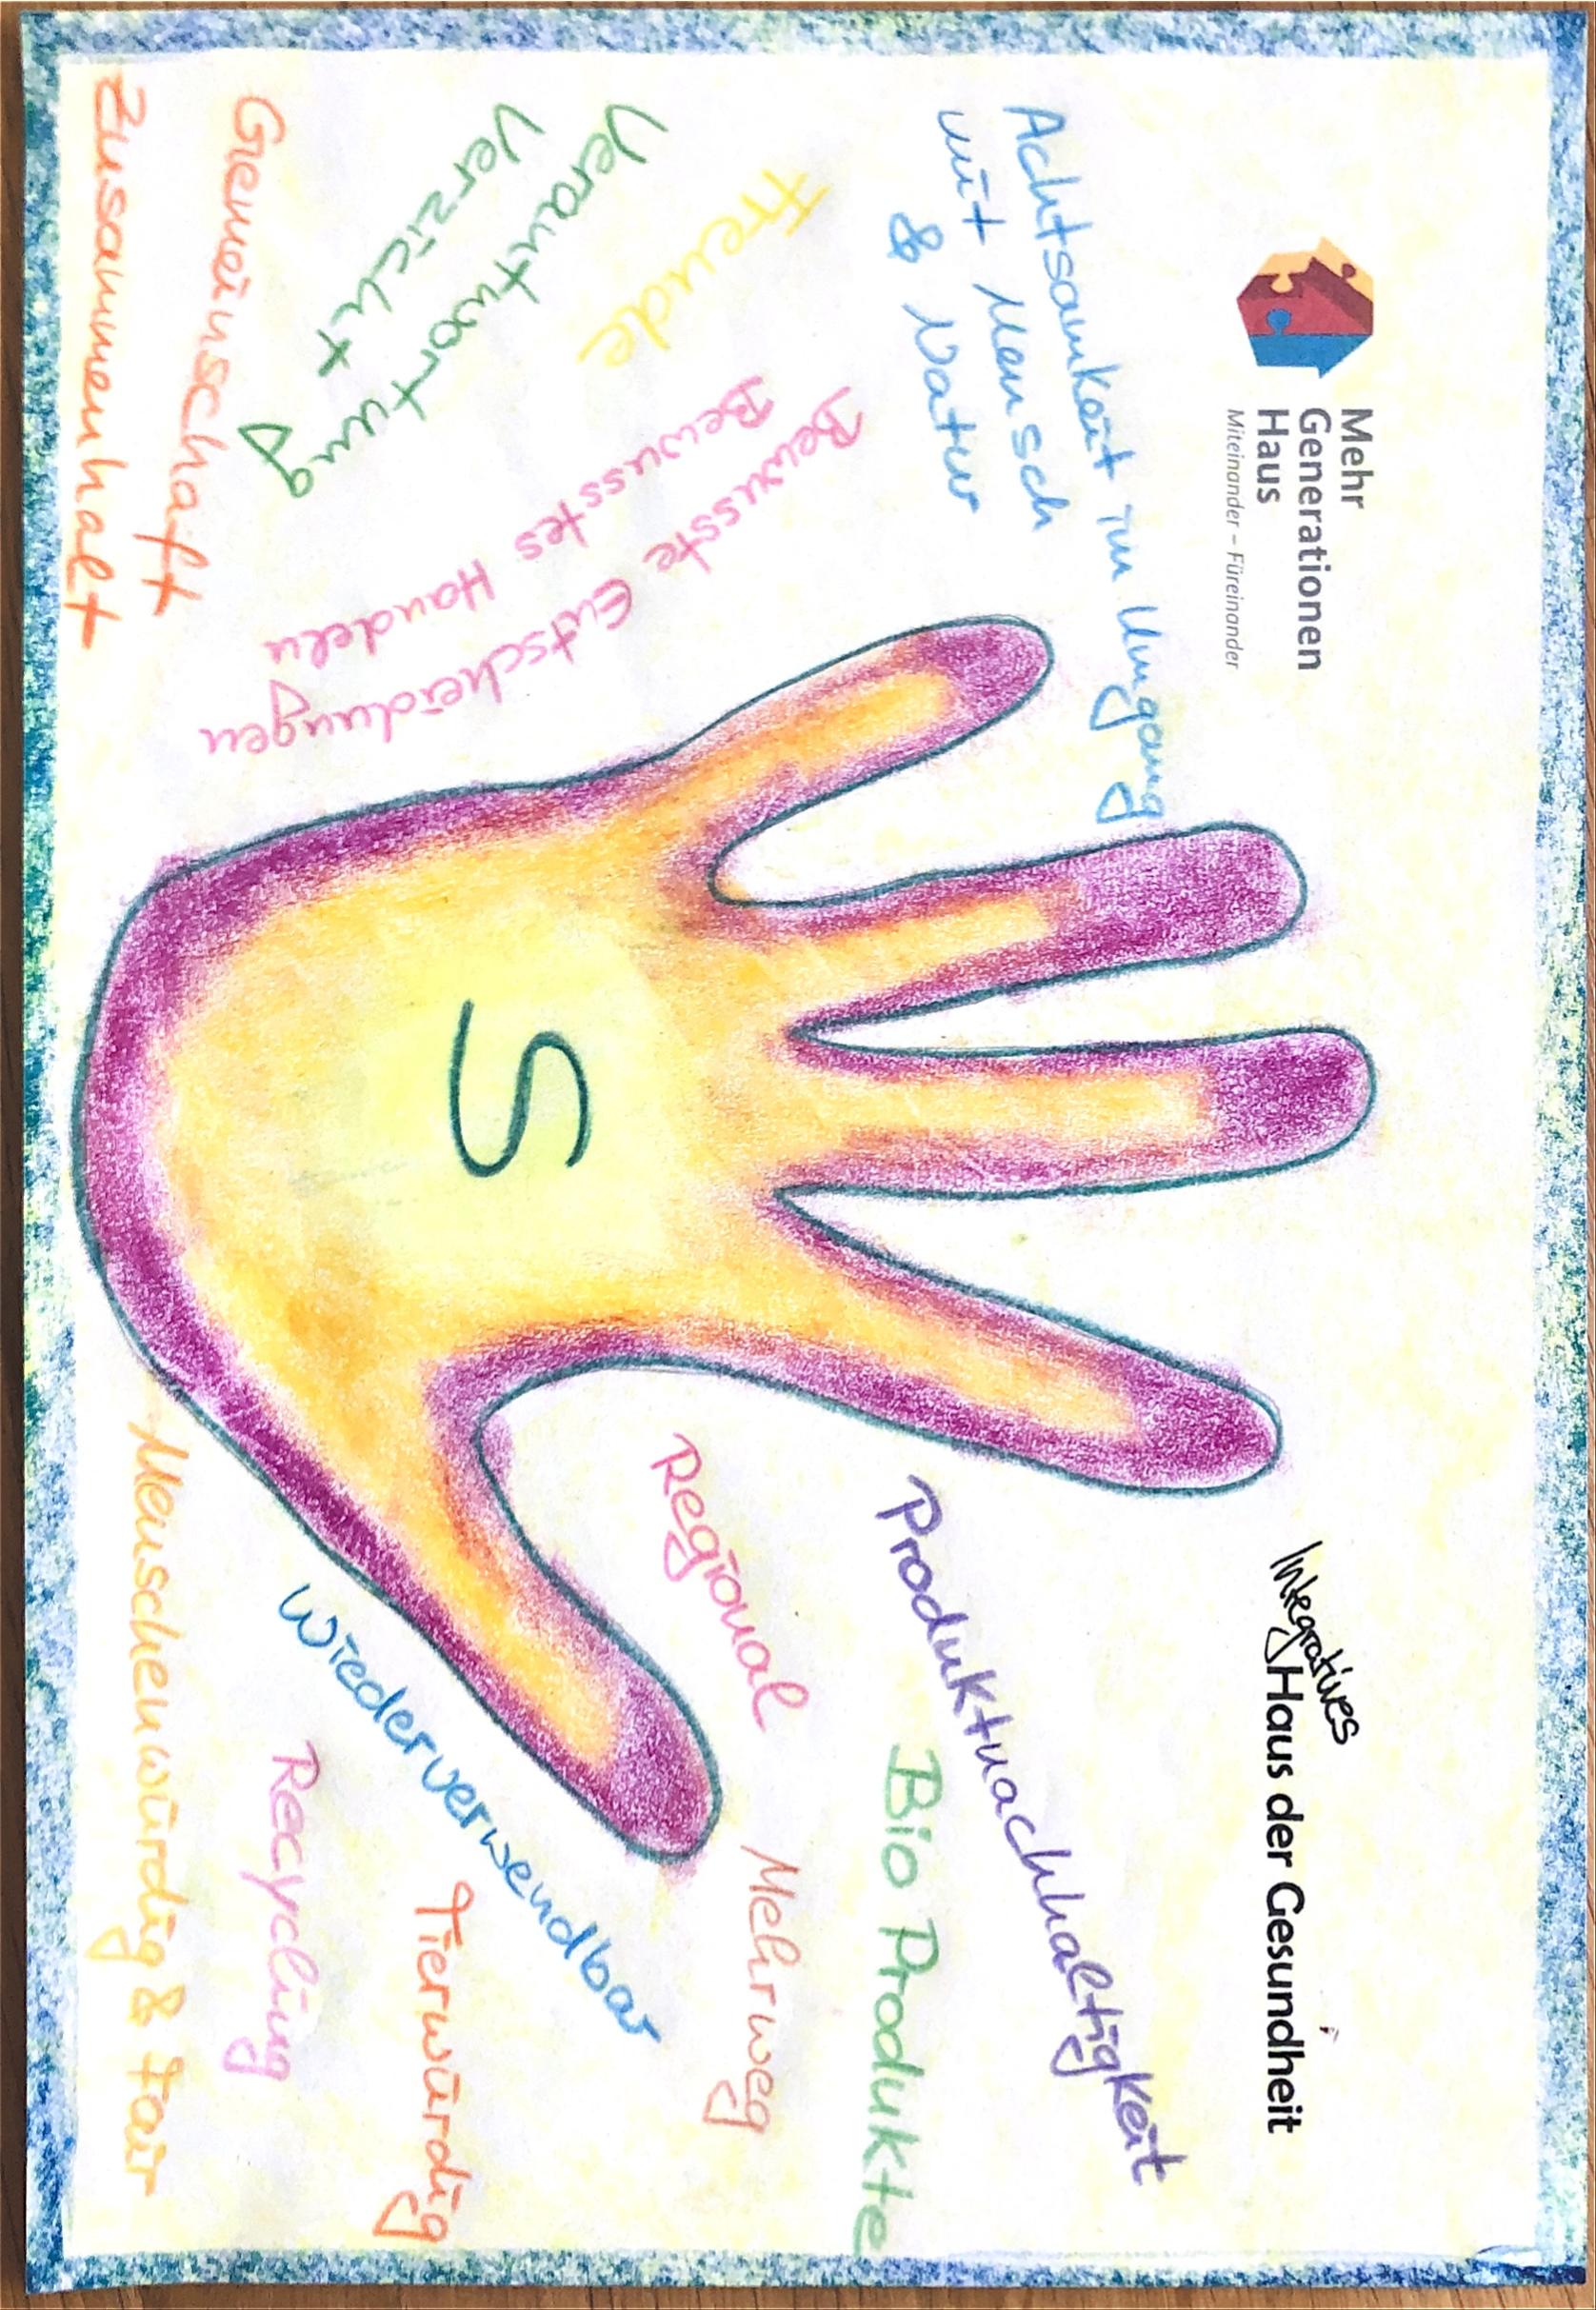 Mehr
Generationen
Haus
Miteinander – Füreinander
Integratives
Haus der Gesundheit
Achtsamkeit im Umgang
mit Mensch
& Natur
Freude
Verantwortung
Verzicht
Bewusste Entscheidungen
Bewusstes Handeln
Gemeinschaft
Zusammenhalt
S
Produktnachhaltigkeit
Bio Produkte
Regional
Mehrweg
Wiederverwendbar
Tierwürdig
Recycling
Menschenwürdig & fair